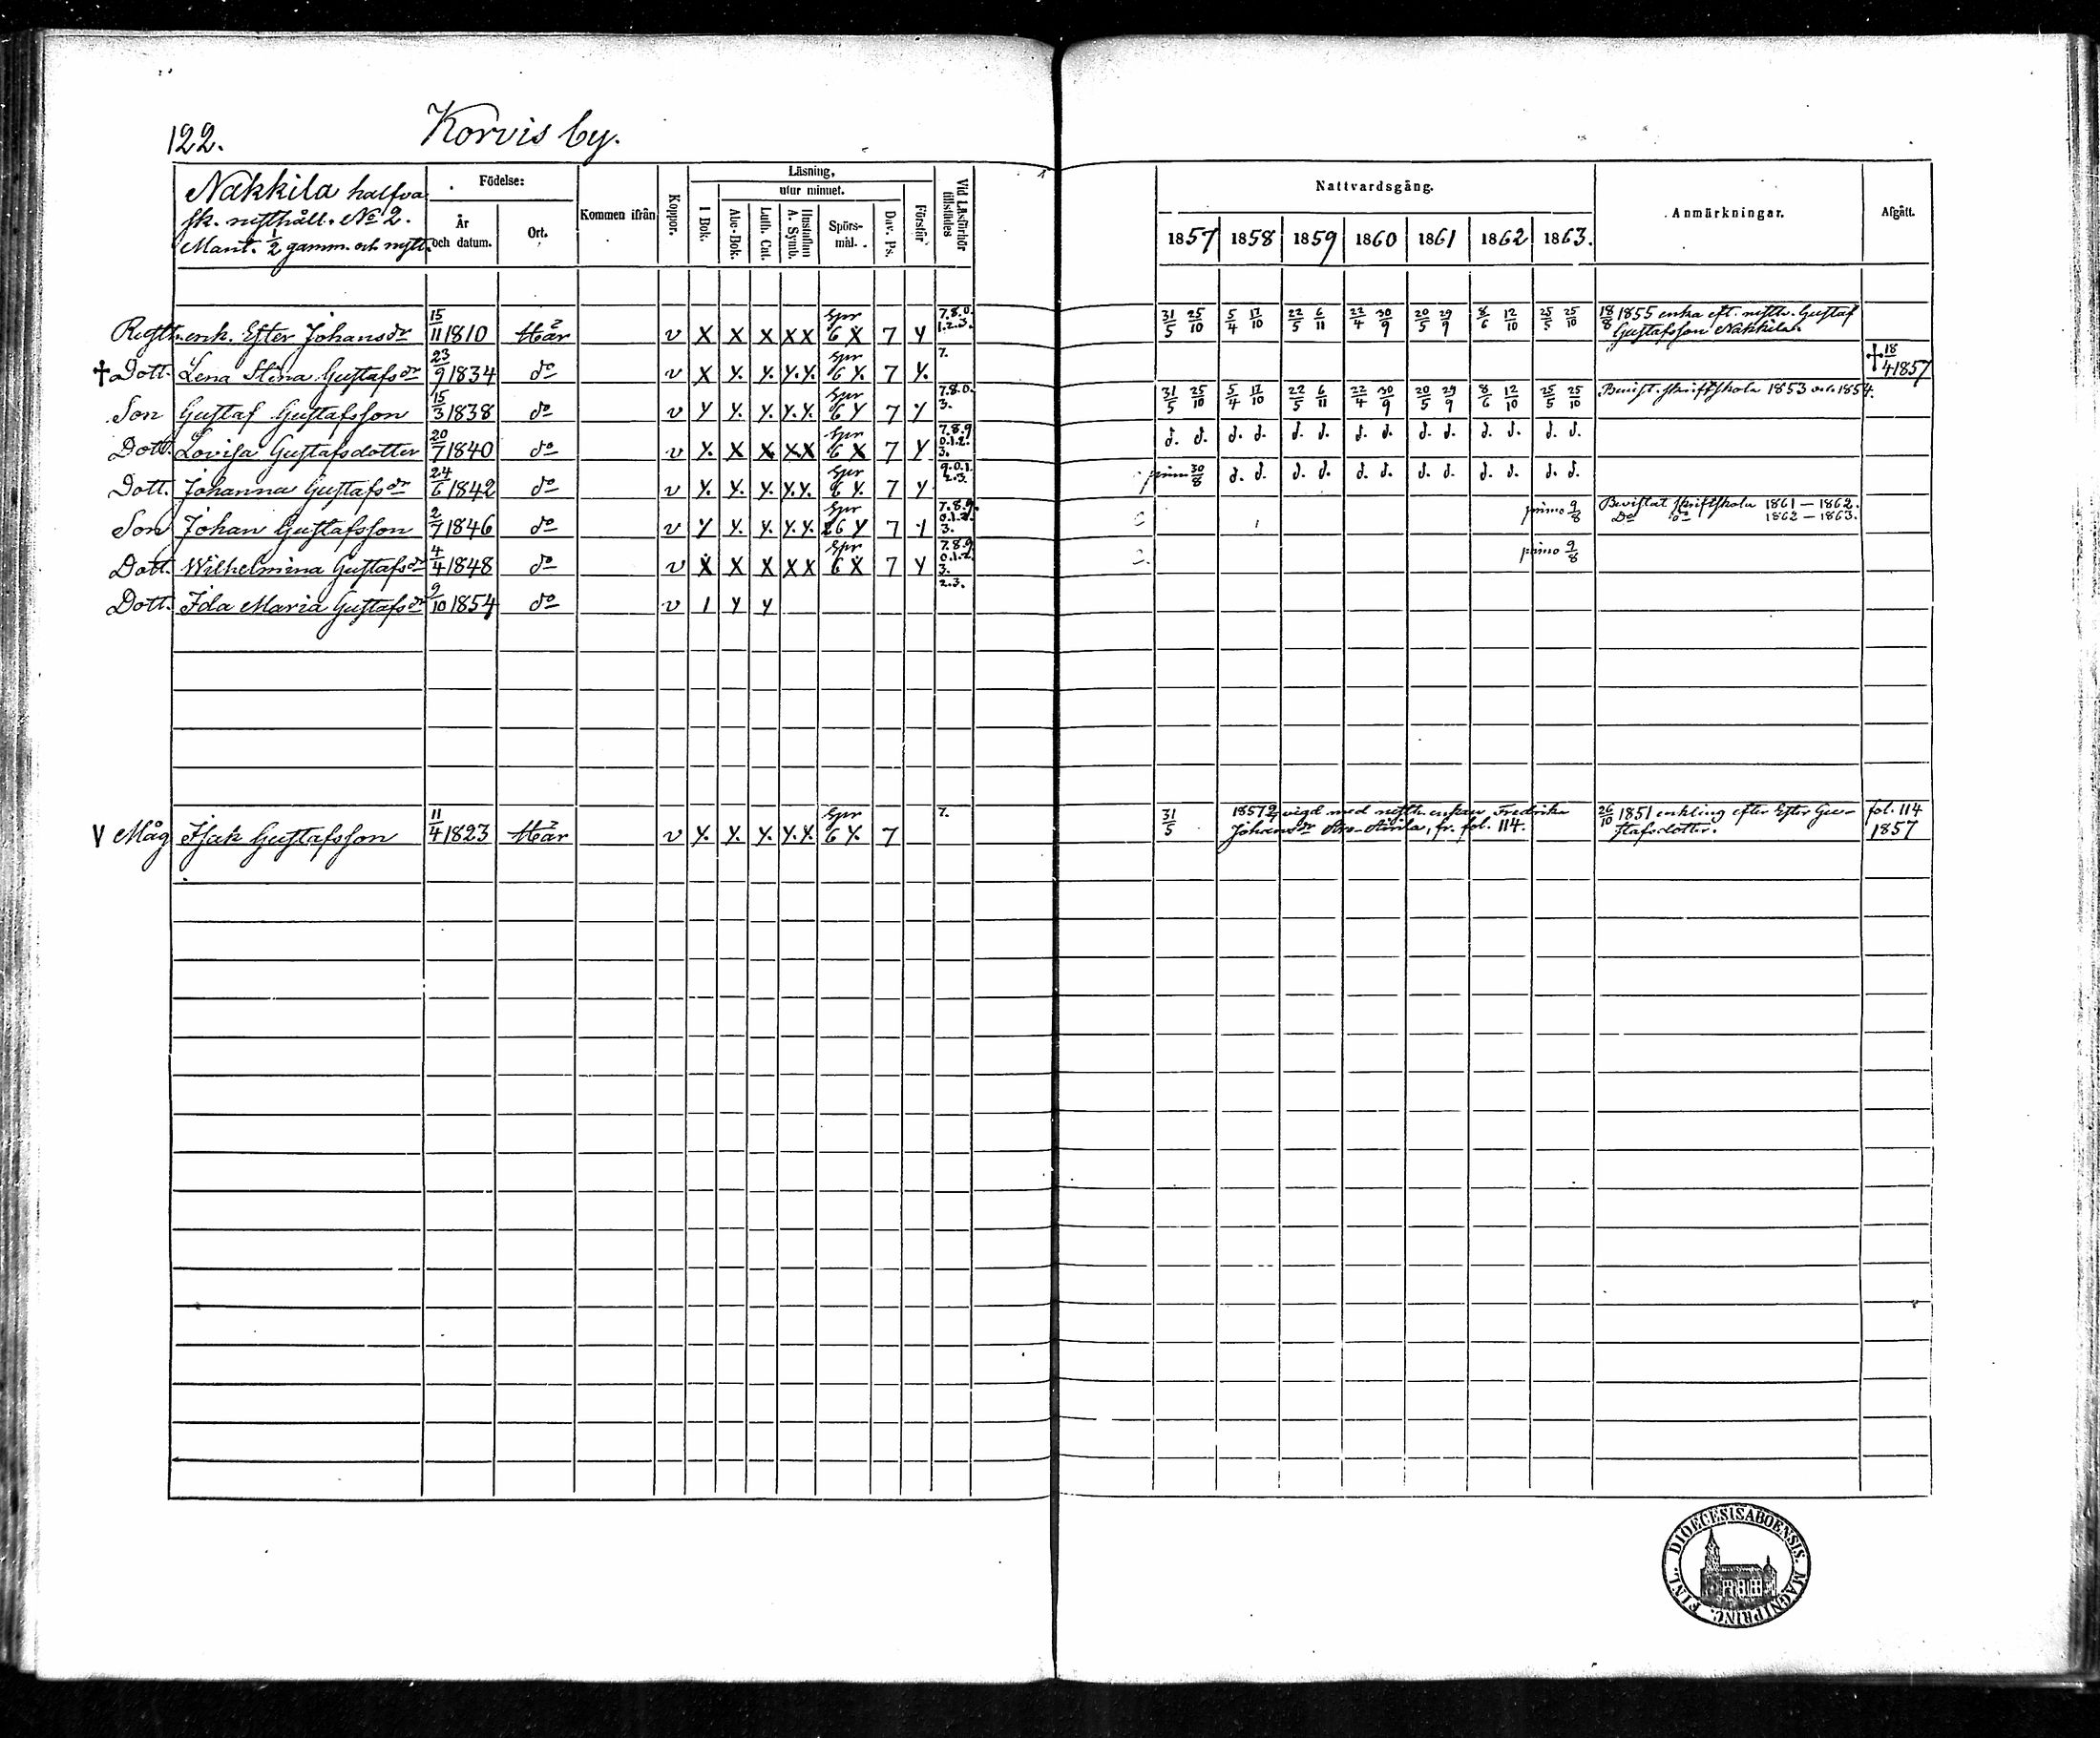 122. Korvis by.
Nakkila halfva
sk. rusthåll. No 2.
Mant. 1/2 gamm. och nytt.
Födelse:
År och datum.
Ort.
Kommen ifrån
Koppor.
Läsning,
I Bok.
utur minnet.
Abc-Bok.
Luth. Cat.
Hustaflan A. Symb.
Spörsmål.
Dav. Ps.
Förstår
Vid Läsförhör tillstädes
Nattvardsgång.
1857 1858 1859 1860 1861 1862 1863.
Anmärkningar.
Afgått.
Rusth. enk. Ester Johansdr 15/11 1810 Här v X X X X X Spr 6 X 7 Y 7.8.0. 1.2.3. 31/5 25/10 5/4 17/10 22/5 6/11 22/4 30/9 20/5 29/9 8/6 12/10 25/5 25/10 18/8 1855 enka eft. rusth. Gustaf
Gustafsson Nakkila.
† Dott. Lena Stina Gustafsdr 23/9 1834 do v X Y. Y. Y. Y. Spr 6 Y. 7 Y. 7. † 18/4 1857
Son Gustaf Gustafsson 15/3 1838 do v Y Y. Y. Y. Y. Spr 6 Y 7 Y 7.8.0. 3. 31/5 25/10 5/4 17/10 22/5 6/11 22/4 30/9 20/5 29/9 8/6 12/10 25/5 25/10 Bevist. skriftskola 1853 och 1854.
Dott. Lovisa Gustafsdotter 20/7 1840 do v Y. X X X X Spr 6 X 7 Y 7.8.9 0.1.2. 3. d. d. d. d. d. d. d. d. d. d. d. d. d. d.
Dott. Johanna Gustafsdr 24/6 1842 do v Y. Y. Y. Y. Y. Spr 6 Y. 7 Y 9.0.1. 2.3. primo 30/8 d. d. d. d. d. d. d. d. d. d. d. d.
Son Johan Gustafsson 2/7 1846 do v Y Y. Y. Y. Y. Spr 6 Y 7 Y 7.8.9. 0.1.2. 3. primo 9/8 Bevistat skriftskola 1861 — 1862.
Do do 1862 — 1863.
Dott. Wilhelmina Gustafsdr 4/4 1848 do v X X X X X Spr 6 X 7 Y 7.8.9 0.1.2. 3. primo 9/8
Dott. Ida Maria Gustafsdr 9/10 1854 do v 1 Y Y 2.3.
V Måg Isak Gustafsson 11/4 1823 Här v Y. Y. Y. Y. Y. Spr 6 Y. 7 7. 31/5 1857 vigd med rusth. enkan Fredrika
Johansdr fr. fol. 114.
26/10 1851 enkling efter Ester Gu-
stafsdotter.
fol. 114
1857
DIOECESIS ABOENSIS. MAGNI PRINC. FINL.